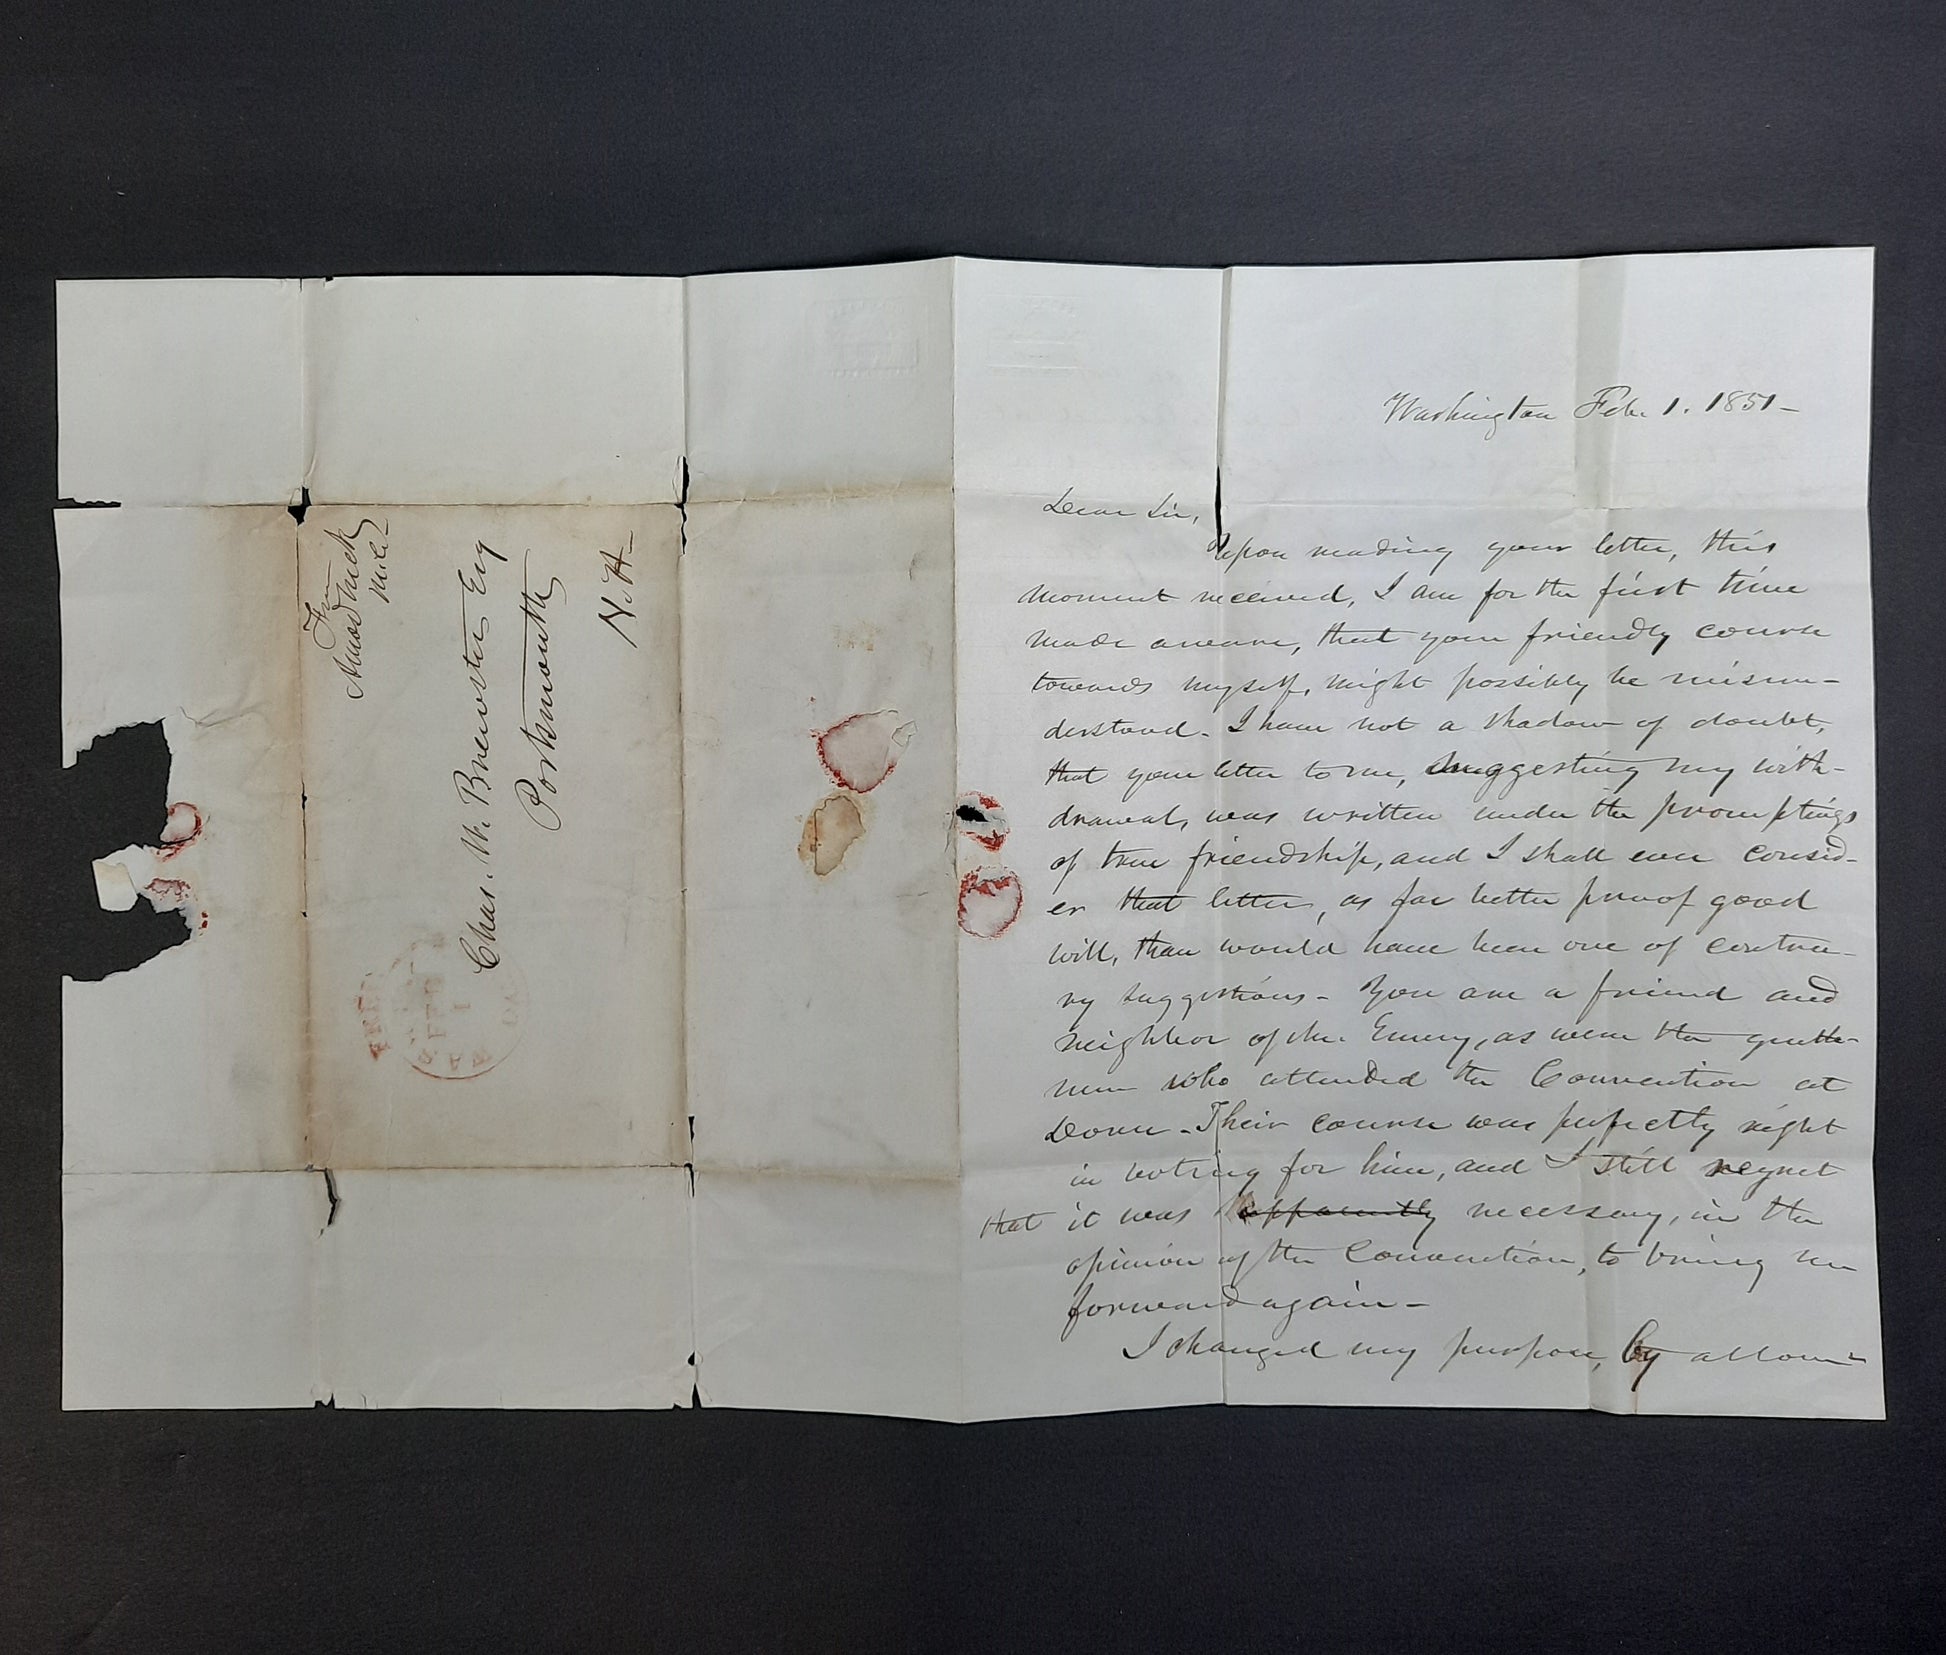 Free
Amos Tuck
M.C.
Chas. W. Brewster Esq
Portsmouth
N.H.
FREE
FEB
1
Washington Feb. 1. 1851-
Dear Sir,
Upon reading your letter, this
moment received, I am for the first time
made aware, that your friendly course
towards myself, might possibly be misun-
derstood. I have not a shadow of doubt,
that your letter to me, suggesting my with-
drawal, was written under the promptings
of true friendship, and I shall ever consid-
er that letter, as far better proof good
will, than would have been one of contra-
ry suggestions - You are a friend and
neighbor of Mr. Emery, as were the gentle-
men who attended the Convention at
Dover - Their course was perfectly right
in voting for him, and I still regret
that it was apparently necessary, in the
opinion of the Convention, to bring me
forward again -
I changed my purpose, by allow-